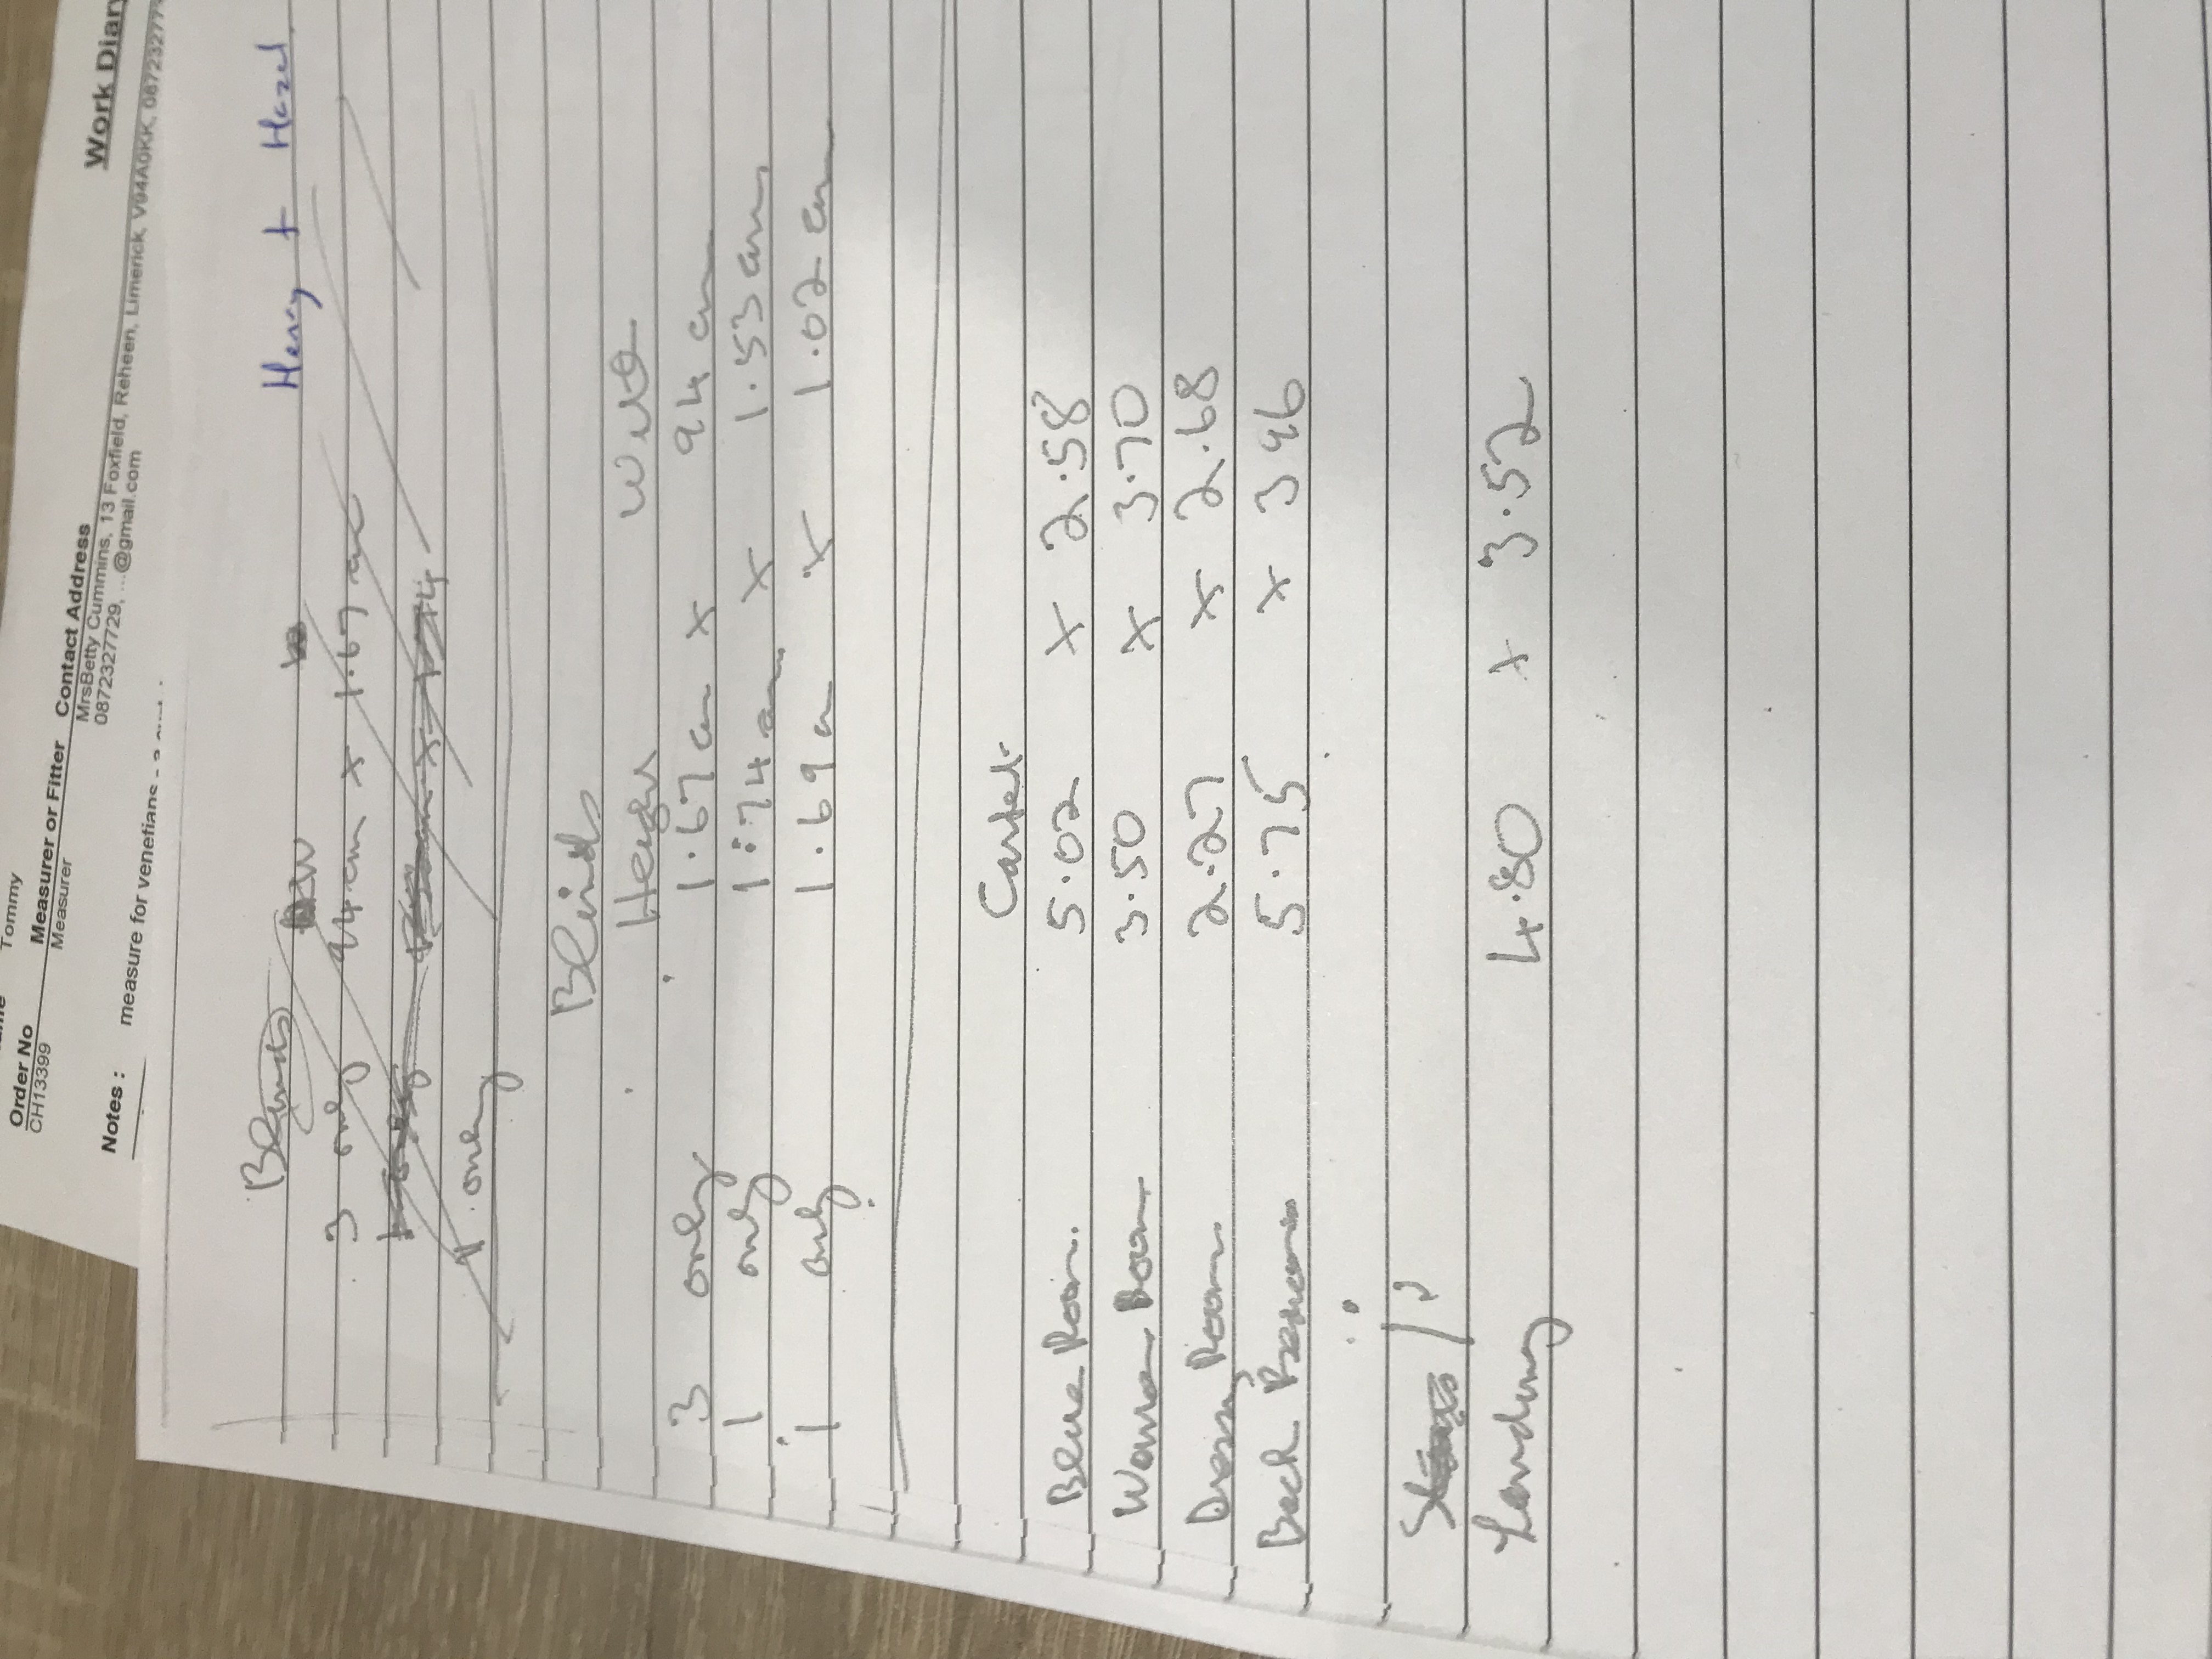 Work Diary
Tommy
Order No Measurer or Fitter Contact Address
CH13399 Measurer MrsBetty Cummins, 13 Foxfield, Reheen, Limerick, V94A0KK, 0872327729
0872327729, ...@gmail.com
Notes : measure for venetians
Henry + Hazel
Blinds
3 only 94 cm x 1.67 cm
1 only
Blinds
Height Width
3 only 1.67 cm x 94 cm
1 only 1.74 cm x 1.53 cm
1 only 1.69 cm x 1.02 cm
Carpet
Room. 5.02 x 2.58
Room 3.50 x 3.70
Room 2.27 x 2.68
Back 5.75 x 3 96
Landing 4.80 x 3.52